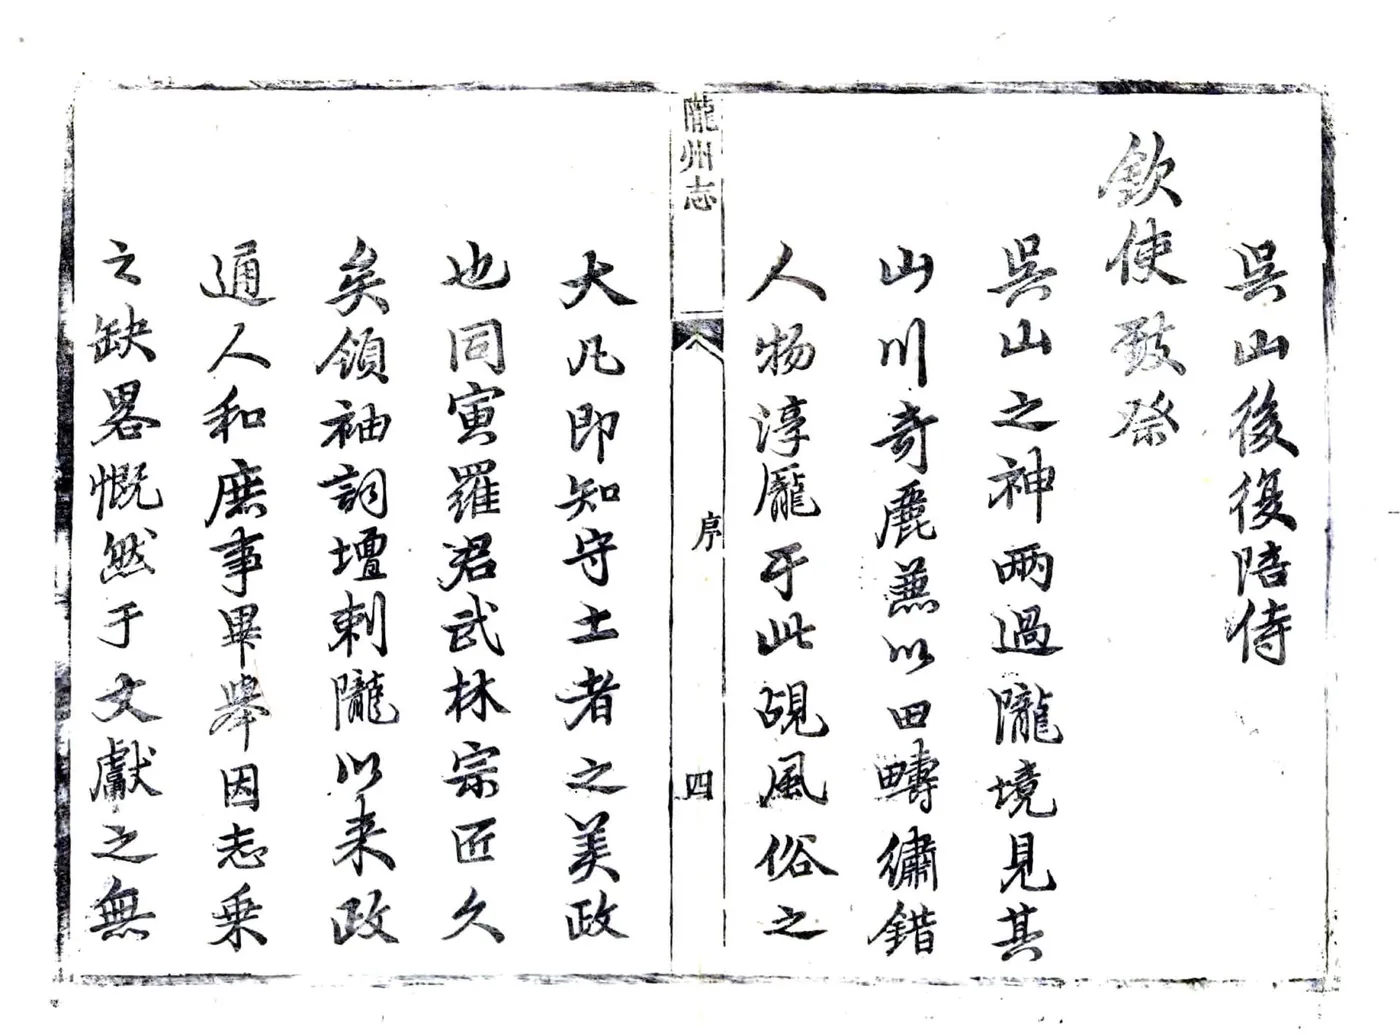 吳山後復陪侍
欽使致祭
吳山之神兩過隴境見其
山川奇麗兼以田疇繡錯
人物淳龐于此覘風俗之
隴州志
序
四
大凡即知守土者之美政
也同寅羅君武林宗匠久
矣領袖詞壇刺隴以来政
通人和庶事畢舉因志乗
之缺畧慨然于文獻之無